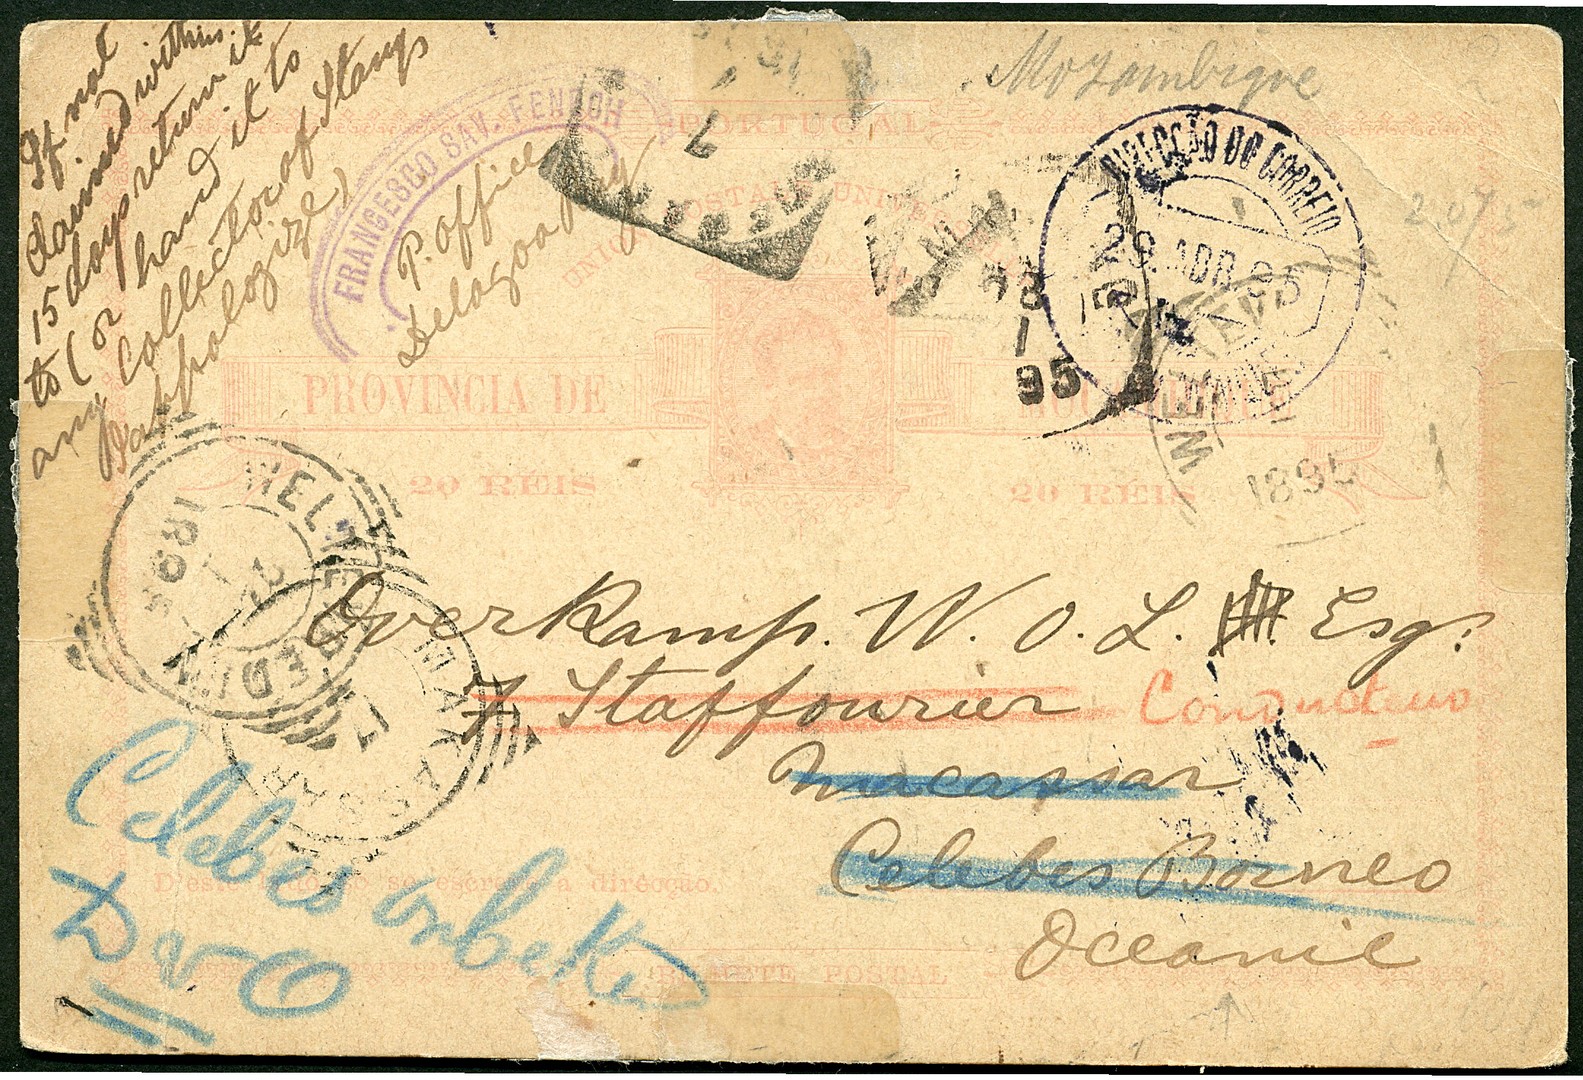 If not
claimed within
15 days return it
to (or hand it to
any collector of Stamps
I appologize)
FRANCESCO SAV.
P. office
Delagoa Bay
Mozambique
2075
PORTUGAL
UNIÃO POSTALE UNIVERSAL
DIRECÇÃO DO CORREIO
29 ABR. 95
1
95
PROVINCIA DE MOÇAMBIQUE
20 REIS 20 REIS
1895
WELTEVREDEN
1895
MAKASSAR
Overkamp. W. O. L. Esq.
Staffourier
Conducteur
Macassar
Celebes Borneo
Oceanie
Celebes onbekend
DvO
D'este lado só se escreve a direcção.
BILHETE POSTAL